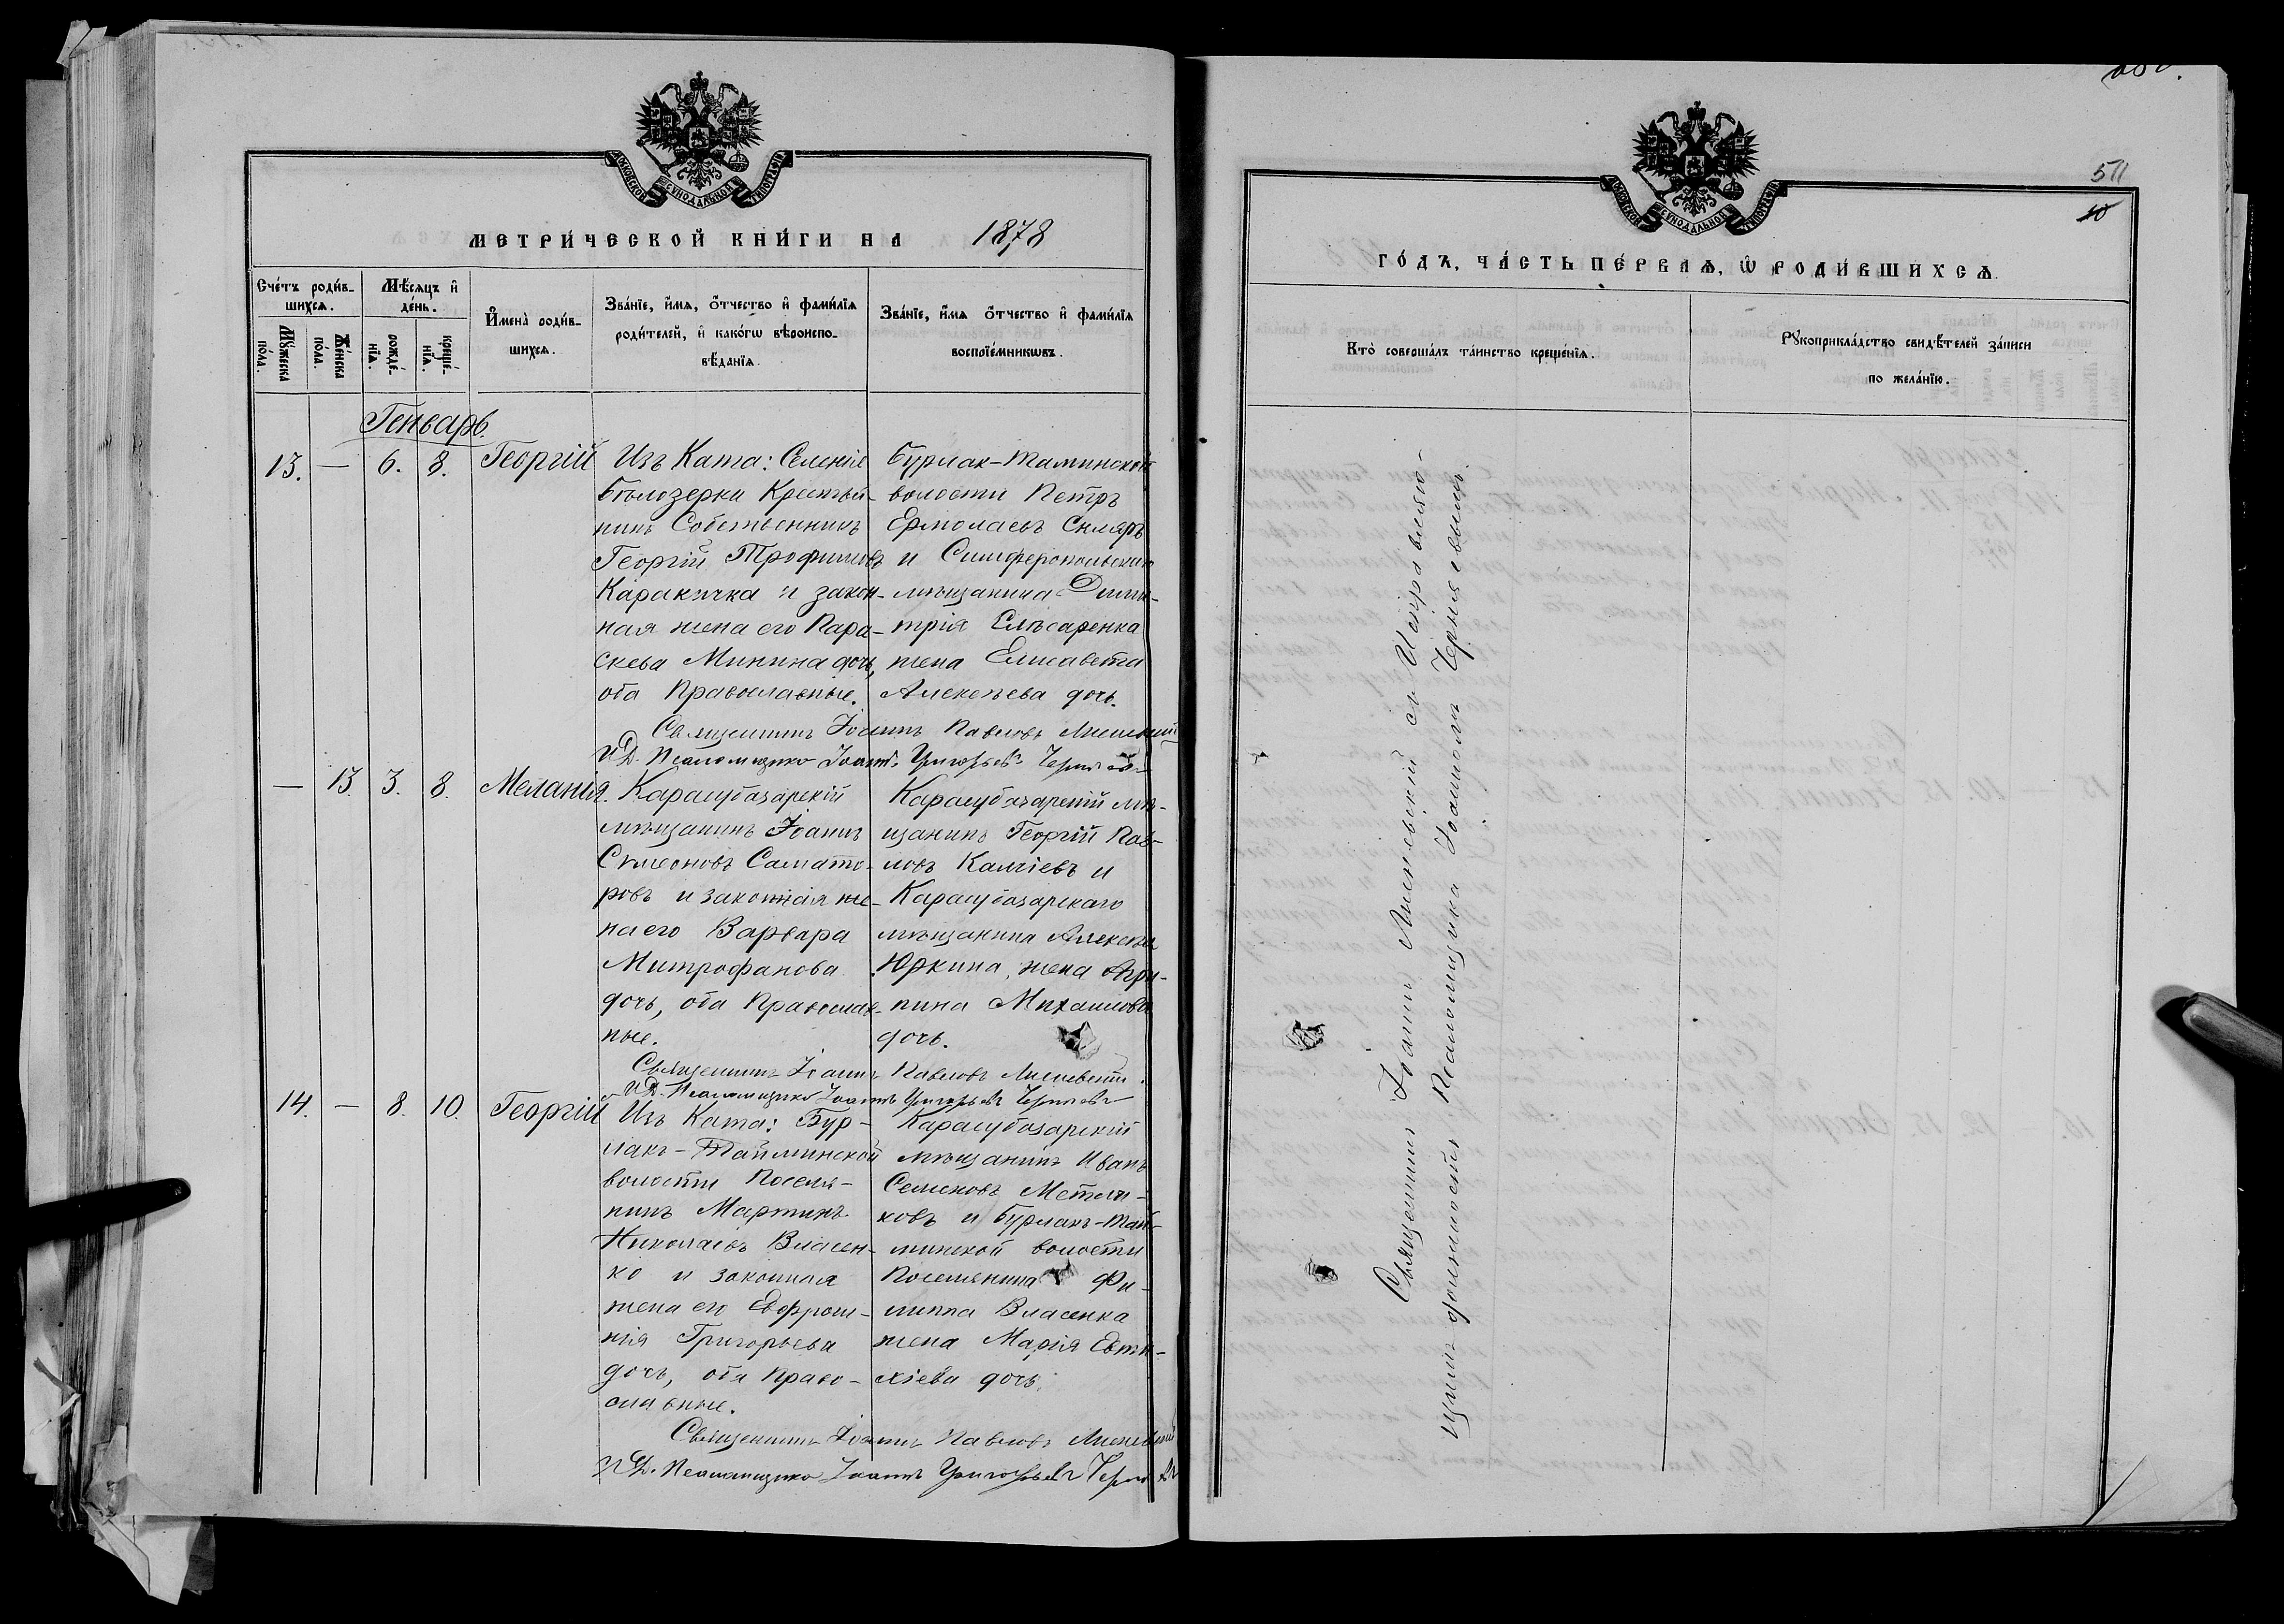 МОСКОВСКОЙ СѴНОДАЛЬНОЙ ТИПОГРАФІИ
МЕТРИ́ЧЕСКОЙ КНИ́ГИ НА 1878
Сче́тъ роди́в-
шихся.
Мѣ́сяцъ и҆
де́нь.
Му́жеска
по́ла.
Же́нска
по́ла.
рожде́-
нїя.
креще́-
нїя.
И҆мена̀ роди́в-
шихся.
Зва́нїе, и҆́мя, ѻ҆́тчество и҆ фами́лїя
роди́телей, и҆ како́гѡ вѣроиспо-
вѣ́данїя.
Зва́нїе, и҆́мя ѻ҆́тчество и҆ фами́лїя
воспрїе́мникѡвъ.
Генварь.
13. — 6. 8. Георгій
Изъ Ката: Селенія
Бѣлозерки Крестья-
нинъ Собственникъ
Георгій Трофимовъ
Каракичка и закон-
ная жена его Пара-
скева Минина дочь,
оба Православные.
Бурлак-Таминской
волости Петръ
Ермолаевъ Скляръ
и Симферопольскаго
мѣщанина Дими-
трія Слѣсаренка
жена Елисавета
Алексѣева дочь.
Священникъ Іоаннъ Павловъ
И.Д. Псаломщика Іоаннъ Григорьевъ
— 13. 3. 8. Меланія.
Карасубазарскій
мѣщанинъ Іоаннъ
Симеоновъ Самато-
ровъ и законная же-
на его Варвара
Митрофанова
дочь, оба Православ-
ные.
Карасубазарскій мѣ-
щанинъ Георгій Пав-
ловъ Калчіевъ и
Карасубазарскаго
мѣщанина Алексѣя
Юркина, жена Агри-
пина Михаилова
дочь.
Священникъ Іоаннъ Павловъ
И.Д. Псаломщика Іоаннъ Григорьевъ
14. — 8. 10. Георгій
Изъ Ката: Бур-
лакъ-Тайминской
волости Поселя-
нинъ Мартинъ
Николаевъ Власен-
ко и законная
жена его Евфроси-
нія Григорьева
дочь, оба Право-
славные.
Карасубазарскій
мѣщанинъ Иванъ
Семеновъ Метли-
ковъ и Бурлакъ-Тай-
минской волости
Поселянина Фи-
липпа Власенка
жена Марія Евти-
хіева дочь.
Священникъ Іоаннъ Павловъ
И.Д. Псаломщика Іоаннъ Григорьевъ
511
10
МОСКОВСКОЙ СѴНОДАЛЬНОЙ ТИПОГРАФІИ
ГО́ДЪ, ЧА́СТЬ ПЕ́РВАЯ, Ѽ РОДИ́ВШИХСЯ.
Кто̀ соверша́лъ та́инство креще́нїя.
Рꙋкоприкла́дство свидѣ́телей за́писи
по жела́нїю.
Священникъ Іоаннъ съ Исправляю-
щимъ должность Псаломщика Іоанномъ